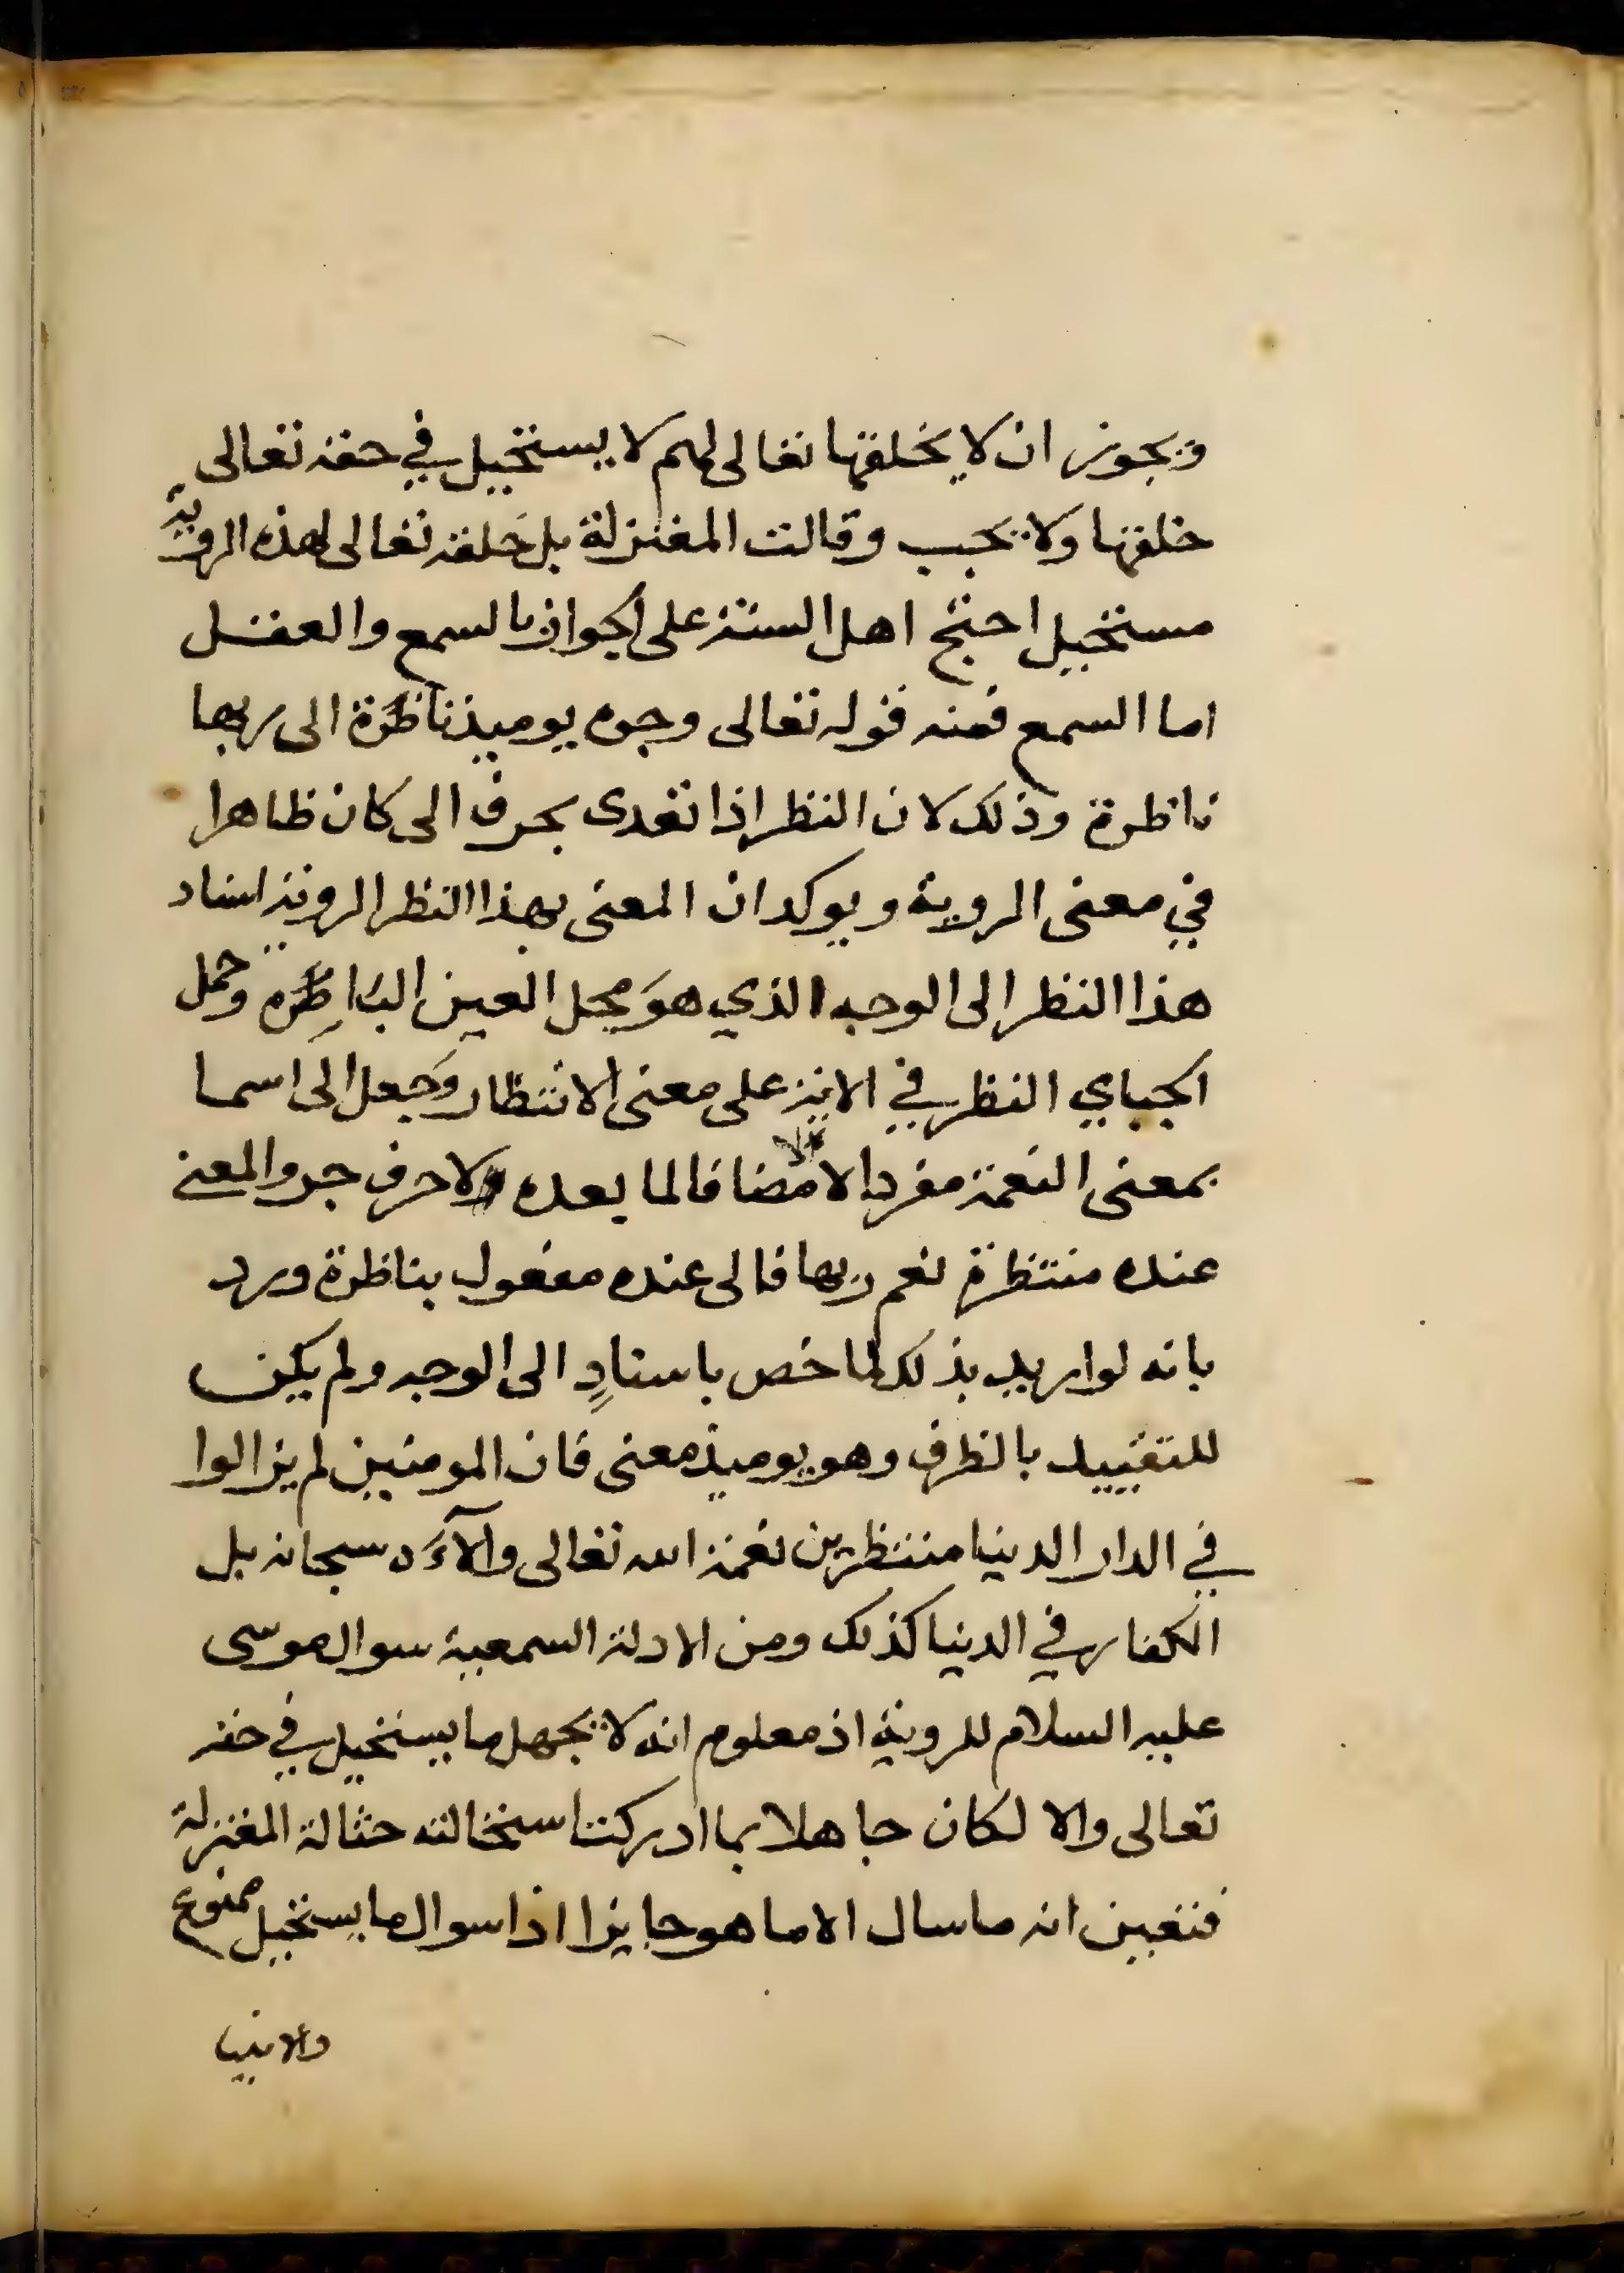 ويجوز ان لا يخلقها تعالى لهم لا يستحيل في حقه تعالى
خلقها ولا يجب وقالت المعتزلة بل خلقه تعالى لهذه الروية
مستحيل احتج اهل السنة على الجواز بالسمع والعقل
اما السمع فمنه قوله تعالى وجوه يوميذ ناظرة الى ربها
ناظرة وذلك لان النظر اذا تعدى بحرف الى كان ظاهرا
في معنى الروية ويوكد ان المعنى بهذا النظر الروية اسناد
هذا النظر الى الوجه الذي هو محل العين الباطرة وحمل
الجباي النظر في الاية على معنى الانتظار وجعل الى اسما
بمعنى النعمة مفرد الالا مضافا لما بعده ولا حرف جر والمعنى
عنده منتظرة نعم ربها فالى عنده مفعول بناظرة ورد
بانه لو اريد بذلك لما خص باسنادٍ الى الوجه ولم يكن
للتقييد بالظرف وهو يوميذ معنى فان المومنين لم يزالوا
في الدار الدنيا منتظرين نعمة الله تعالى وآلآءه سبحانه بل
الكفار في الدنيا كذلك ومن الادلة السمعية سوال موسى
عليه السلام للروية اذ معلوم انه لا يجهل ما يستحيل في حقه
تعالى والا لكان جاهلا بما ادركت استحالته حثالة المعتزلة
فتعين انه ما سال الا ما هو جايزا اذا سوال ما يستحيل ممنوع
والانبيا